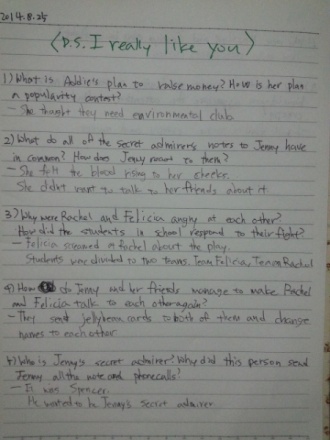 2014.8.25
<P.S. I really like you>
1) What is Addie's plan to raise money? How is her plan
a popularity contest?
- She thought they need environmental club.
2) What do all of the secret admirers notes to Jenny have
in common? How does Jenny react to them?
- She felt the blood rising to her cheeks.
She didn't want to talk to her friends about it.
3) Why were Rachel and Felicia angry at each other?
How did the students in school respond to their fight?
- Felicia screamed at Rachel about the play.
Students was divided to two teams. Team Felicia, Team Rachel
4) How do Jenny and her friends manage to make Rachel
and Felicia talk to each other again?
- They send jellybean cards to both of them and change
names to each other
4) Who is Jenny's secret admirer? Why did this person send
Jenny all the note and phone calls?
- It was Spencer.
He wanted to be Jenny's secret admirer